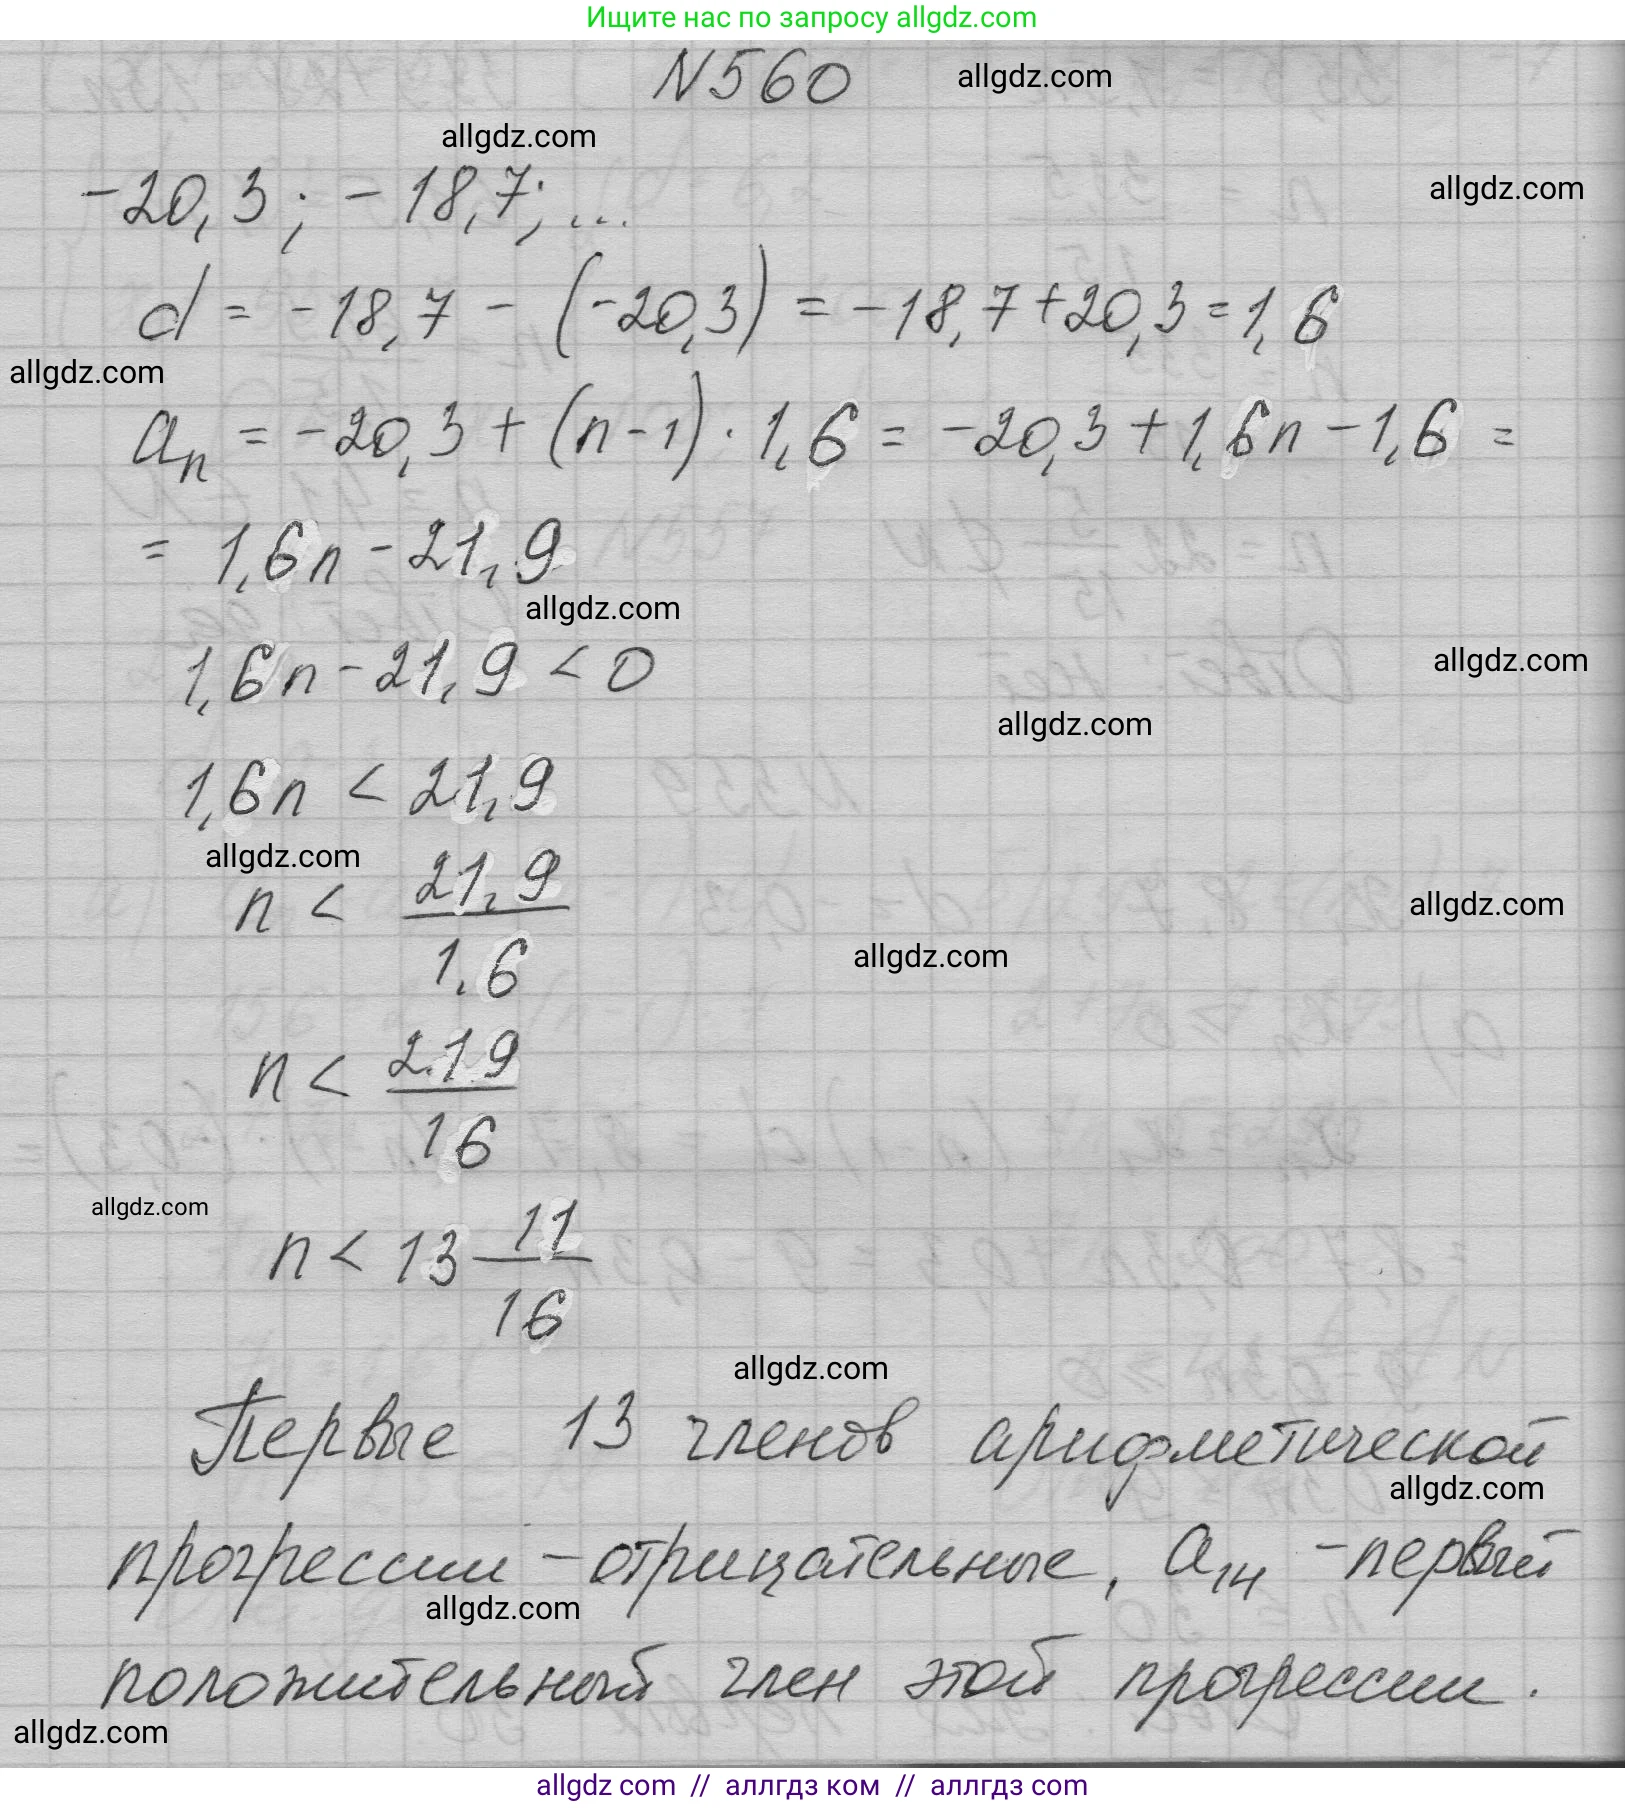 Ищите нас по запросу allgdz.com
N560
allgdz.com
allgdz.com
-20,3; -18,7; ...
allgdz.com
d = -18,7 - (-20,3) = -18,7 + 20,3 = 1,6
allgdz.com
aₙ = -20,3 + (n-1) · 1,6 = -20,3 + 1,6n - 1,6 =
= 1,6n - 21,9
allgdz.com
1,6n - 21,9 < 0
allgdz.com
allgdz.com
1,6n < 21,9
allgdz.com
n < 21,9/1,6
allgdz.com
allgdz.com
n < 219/16
allgdz.com
n < 13 11/16
allgdz.com
Первые 13 членов арифметической
allgdz.com
прогрессии - отрицательные, a₁₄ - первый
allgdz.com
положительный член этой прогрессии.
allgdz.com
allgdz com // аллгдз ком // аллгдз com